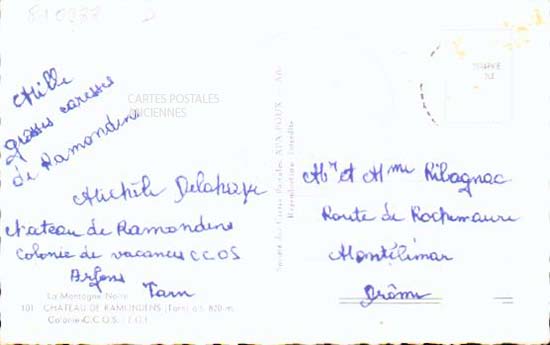 Mille
grosses caresses
de Ramondens
CARTES POSTALES
ANCIENNES
Michèle Delahaye
Château de Ramondens
Colonie de vacances CCOS
Arfons
Tarn
La Montagne Noire
101 CHATEAU DE RAMONDENS (Tarn) alt. 820 m.
Colonie C.C.O.S.
Mr et Mme Ribagnac
Route de Rochemaure
Montélimar
Drôme
Société des Cartes Postales APA-POUX - Albi
Reproduction interdite